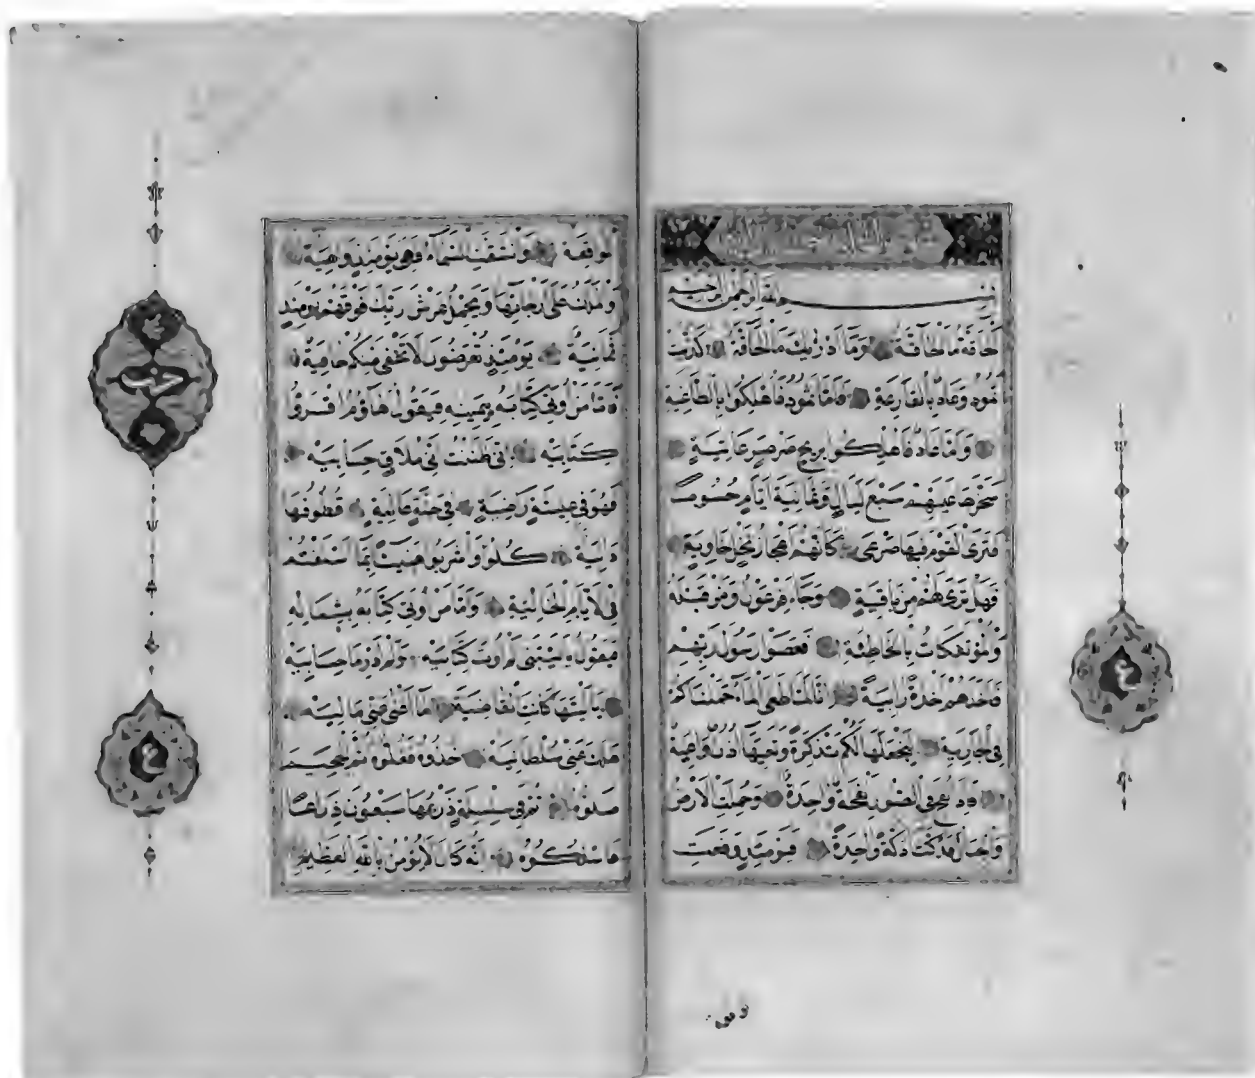 سورة الحاقة
بسم الله الرحمن الرحيم
الحاقة ما الحاقة وما ادريك ما الحاقة كذبت
ثمود وعاد بالقارعة فاما ثمود فاهلكوا بالطاغية
واما عاد فاهلكوا بريح صرصر عاتية
سخرها عليهم سبع ليال وثمانية ايام حسوما
فترى القوم فيها صرعى كانهم اعجاز نخل خاوية
فهل ترى لهم من باقية وجاء فرعون ومن قبله
والمؤتفكات بالخاطئة فعصوا رسول ربهم
فاخذهم اخذة رابية انا لما طغى الماء حملناكم
في الجارية لنجعلها لكم تذكرة وتعيها اذن واعية
فاذا نفخ في الصور نفخة واحدة وحملت الارض
والجبال فدكتا دكة واحدة فيومئذ وقعت
ع
الواقعة وانشقت السماء فهي يومئذ واهية
والملك على ارجائها ويحمل عرش ربك فوقهم يومئذ
ثمانية يومئذ تعرضون لا تخفى منكم خافية
فاما من اوتي كتابه بيمينه فيقول هاؤم اقرؤا
كتابيه اني ظننت اني ملاق حسابيه
فهو في عيشة راضية في جنة عالية قطوفها
دانية كلوا واشربوا هنيئا بما اسلفتم
في الايام الخالية واما من اوتي كتابه بشماله
فيقول يا ليتني لم اوت كتابيه ولم ادر ما حسابيه
يا ليتها كانت القاضية ما اغنى عني ماليه
هلك عني سلطانيه خذوه فغلوه ثم الجحيم
صلوه ثم في سلسلة ذرعها سبعون ذراعا
فاسلكوه انه كان لا يؤمن بالله العظيم
حزب
ع